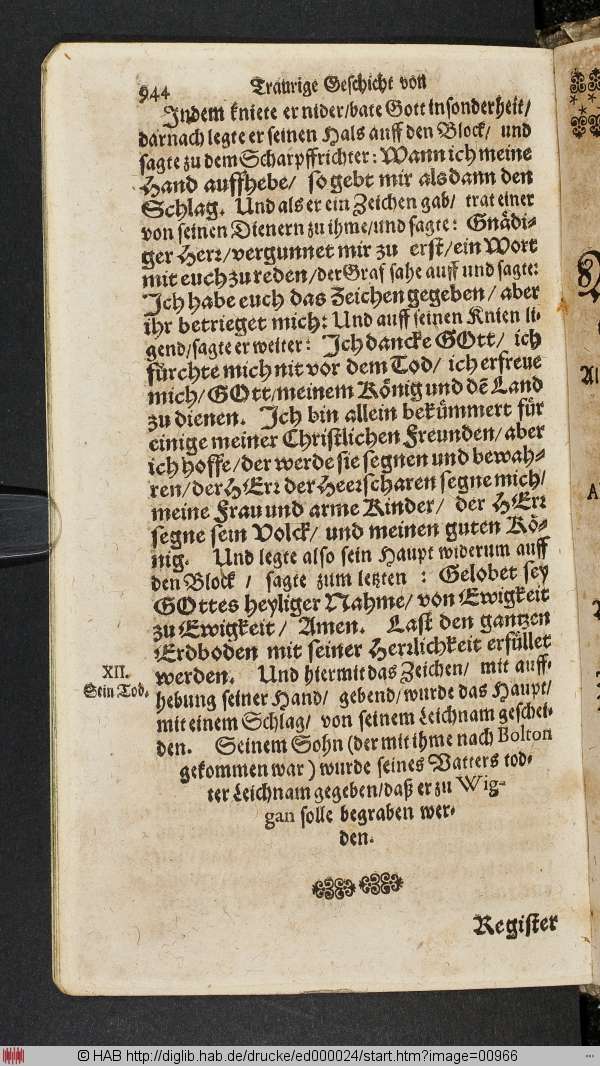 944 Traurige Geschicht von
Indem kniete er nider/bate Gott insonderheit/
darnach legte er seinen Hals auff den Block/ und
sagte zu dem Scharpffrichter: Wann ich meine
Hand auffhebe/ so gebt mir alsdann den
Schlag. Und als er ein Zeichen gab/ trat einer
von seinen Dienern zu ihme/und sagte: Gnädi-
ger Herr/vergunnet mir zu erst/ein Wort
mit euch zu reden/der Graf sahe auff und sagte:
Ich habe euch das Zeichen gegeben/ aber
ihr betrieget mich: Und auff seinen Knien li-
gend/sagte er weiter: Ich dancke GOtt/ ich
fürchte mich nit vor dem Tod/ ich erfreue
mich/ GOtt/meinem König und dē Land
zu dienen. Ich bin allein bekümmert für
einige meiner Christlichen Freunden/ aber
ich hoffe/der werde sie segnen und bewah-
ren/der HErr der Heerscharen segne mich/
meine Frau und arme Kinder/ der HErr
segne sein Volck/ und meinen guten Kö-
nig. Und legte also sein Haupt widerum auff
den Block / sagte zum letzten : Gelobet sey
GOttes heyliger Nahme/ von Ewigkeit
zu Ewigkeit/ Amen. Last den gantzen
Erdboden mit seiner Herrlichkeit erfüllet
XII. werden. Und hiermit das Zeichen/ mit auff-
Sein Tod. hebung seiner Hand/ gebend/wurde das Haupt/
mit einem Schlag/ von seinem Leichnam geschei-
den. Seinem Sohn (der mit ihme nach Bolton
gekommen war) wurde seines Vatters tod-
ter Leichnam gegeben/daß er zu Wig-
gan solle begraben wer-
den.
Register
© HAB http://diglib.hab.de/drucke/ed000024/start.htm?image=00966